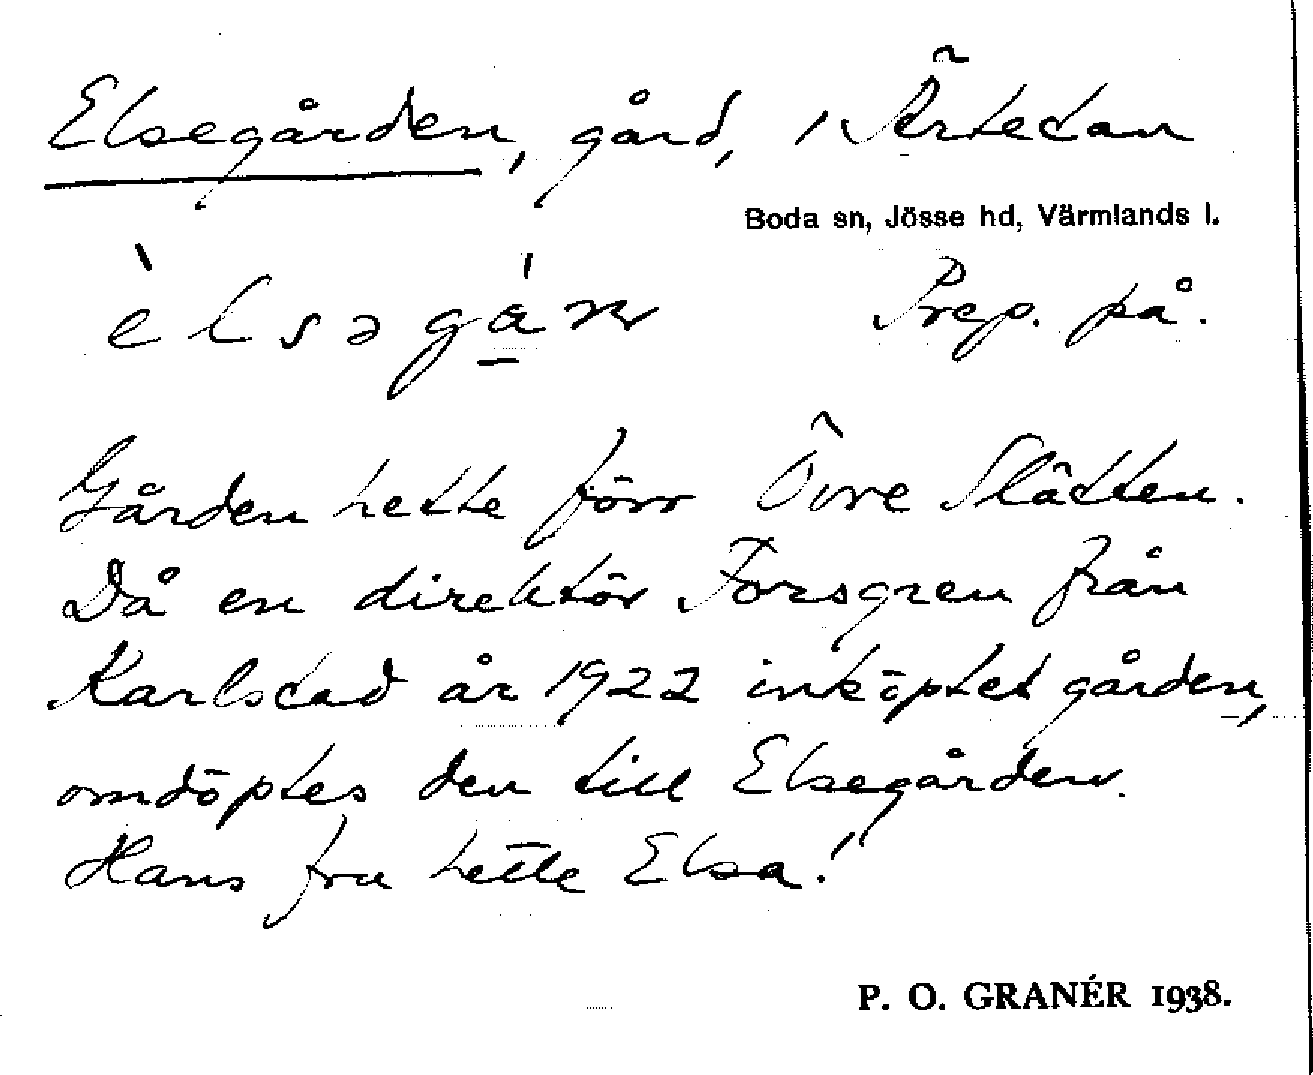 Elsegården, gård, i Ärtetan
Boda sn, Jösse hd, Värmlands l.
èlsəgá̱rn Prep. på.
Gården hette förr Övre Slätten.
Då en direktör Forsgren från
Karlstad år 1922 inköptet gården,
omdöptes den till Elsegården.
Hans fru hette Elsa!
P. O. GRANÉR 1938.